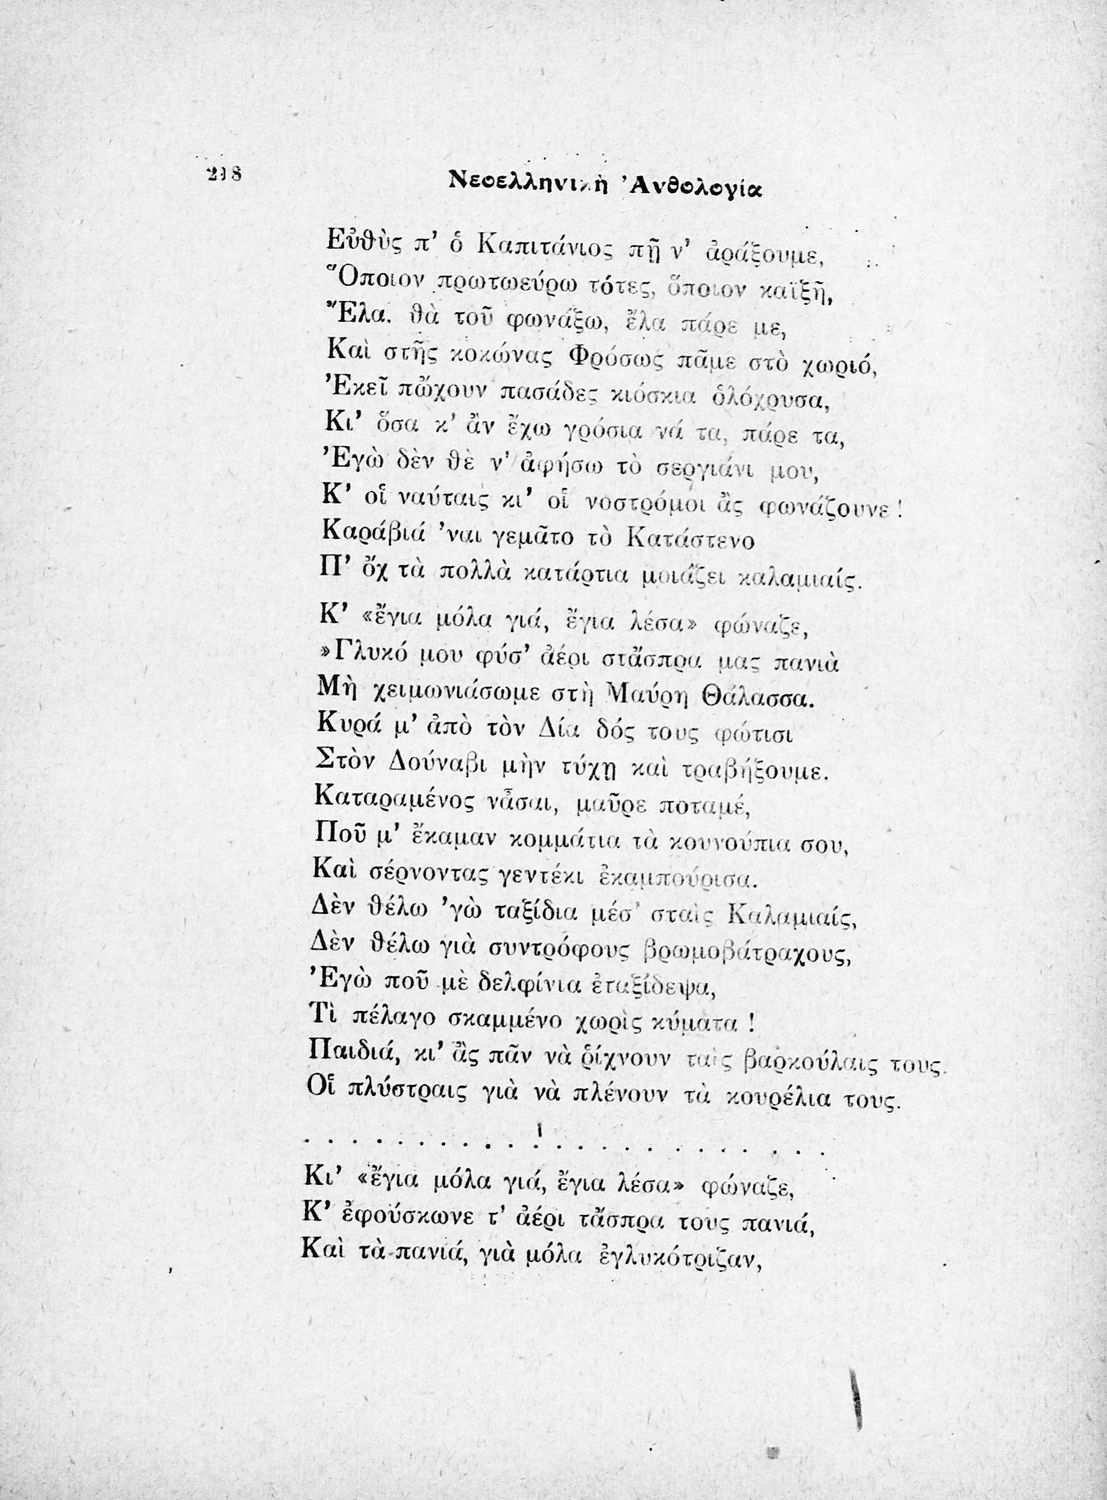 218
Νεοελληνικὴ Ἀνθολογία
Εὐθὺς π' ὁ Καπιτάνιος πῇ ν' ἀράξουμε,
Ὅποιον πρωτωεύρω τότες, ὅποιον καϊξῆ,
Ἔλα. θὰ τοῦ φωνάξω, ἔλα πάρε με,
Καὶ στῆς κοκώνας Φρόσως πᾶμε στὸ χωριό,
Ἐκεῖ πὤχουν πασάδες κιόσκια ὁλόχρυσα,
Κι' ὅσα κ' ἂν ἔχω γρόσια νά τα, πάρε τα,
Ἐγὼ δὲν θὲ ν' ἀφήσω τὸ σεργιάνι μου,
Κ' οἱ ναύταις κι' οἱ νοστρόμοι ἂς φωνάζουνε!
Καράβιά 'ναι γεμᾶτο τὸ Κατάστενο
Π' ὄχ τὰ πολλὰ κατάρτια μοιάζει καλαμιαίς.
Κ' «ἔγια μόλα γιά, ἔγια λέσα» φώναζε,
»Γλυκό μου φύσ' ἀέρι στἄσπρα μας πανιὰ
Μὴ χειμωνιάσωμε στὴ Μαύρη Θάλασσα.
Κυρά μ' ἀπὸ τὸν Δία δός τους φώτισι
Στὸν Δούναβι μὴν τύχῃ καὶ τραβήξουμε.
Καταραμένος νἆσαι, μαῦρε ποταμέ,
Ποῦ μ' ἔκαμαν κομμάτια τὰ κουνούπια σου,
Καὶ σέρνοντας γεντέκι ἐκαμπούρισα.
Δὲν θέλω 'γὼ ταξίδια μέσ' σταὶς Καλαμιαίς,
Δὲν θέλω γιὰ συντρόφους βρωμοβάτραχους,
Ἐγὼ ποῦ μὲ δελφίνια ἐταξίδεψα,
Τὶ πέλαγο σκαμμένο χωρὶς κύματα!
Παιδιά, κι' ἂς πᾶν νὰ ῥίχνουν ταὶς βαρκούλαις τους.
Οἱ πλύστραις γιὰ νὰ πλένουν τὰ κουρέλια τους.
. . . . . . . . . . . . . . . . . . . . . . .
Κι' «ἔγια μόλα γιά, ἔγια λέσα» φώναζε,
Κ' ἐφούσκωνε τ' ἀέρι τἄσπρα τους πανιά,
Καὶ τὰ πανιά, γιὰ μόλα ἐγλυκότριζαν,